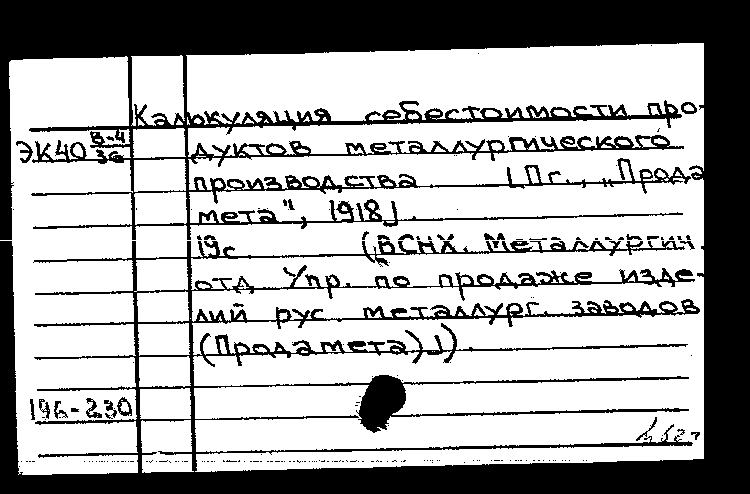 Калькуляция себестоимости про-
ЭК40 В-4/36 дуктов металлургического
производства [Пг., „Прода
мета", 1918].
19с (ВСНХ. Металлургич.
отд Упр. по продаже изде-
лий рус. металлург. заводов
(Продамета)]).
196-230